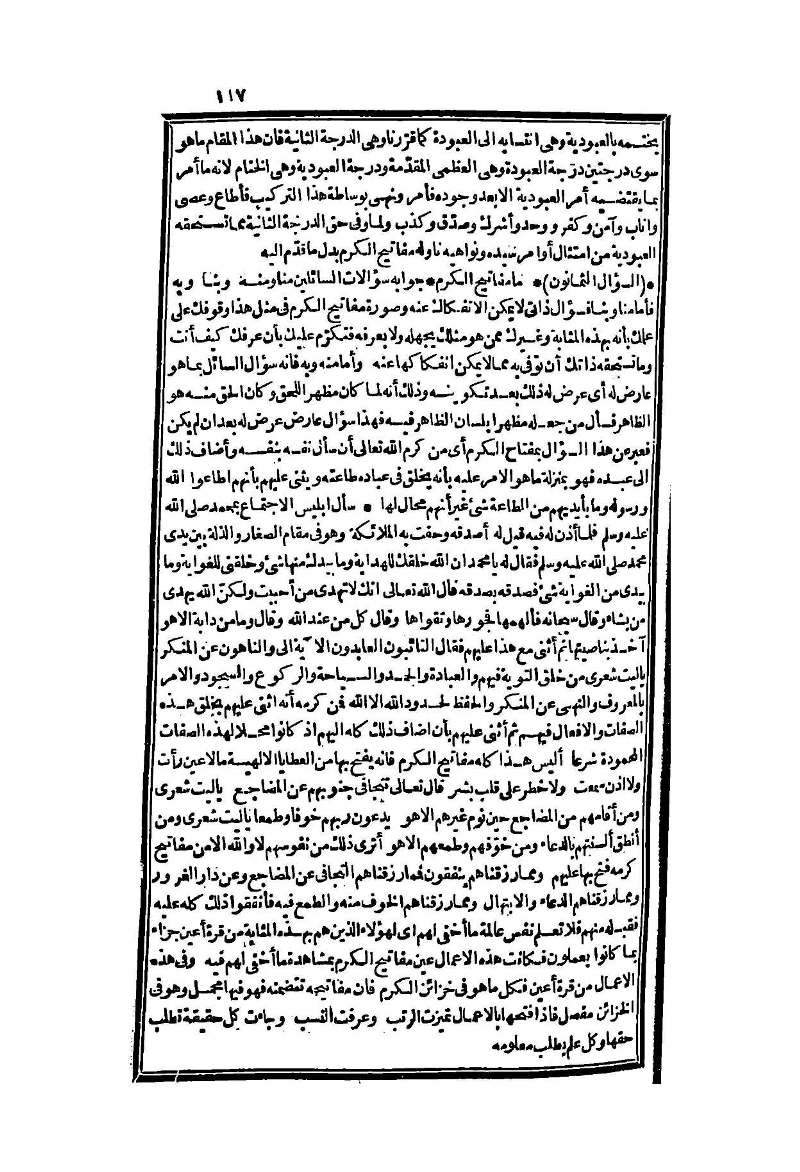 ١١٧
يختمه بالعبودية وهى انتسابه الى العبودة كما قررناوهى الدرجة الثانية فان هذا المقام ماهو
سوى درجتين درجة العبودة وهى العظمى المقدّمة ودرجة العبودية وهى الختام لانه ما أمر
بما يقتضيه أمر العبودية الا بعد وجوده فأمر ونهى بوساطة هذا التركيب فأطاع وعصى
واناب وآمن وكفر ووحد وأشرك وصدّق وكذب ولما وفى حق الدرجة الثانية بما تستحقه
العبودية من امتثال أوامر سيده ونواهيه ناوله مفاتيح الكرم بدل ما قدّم اليه
* (السؤال الثمانون) * ما مفاتيح الكرم * جوابه سؤالات السائلين منا ومنه وبنا وبه
فأما منا وبنا فسؤال ذاتى لا يمكن الانفكاك عنه وصورة مفاتيح الكرم فى مثل هذا وقوفك على
علمك بأنه بهذه المثابة وغيرك ممن هو مثلك يجهله ولا يعرفه فتكرّم عليك بأن عرفك كيف أنت
وما تستحقه ذاتك أن توفى به مما لا يمكن انفكاكها عنه وأما منه وبه فانه سؤال السائل بما هو
عارض له أى عرض له ذلك بعد تكوينه وذلك أنه لما كان مظهر اللحق وكان الحق منه هو
الظاهر فسأل من جعله مظهرا بلسان الظاهر فيه فهذا سؤال عارض عرض له بعد ان لم يكن
فعبر عن هذا السؤال بمفتاح الكرم أى من كرم الله تعالى أن سأل نفسه بنفسه وأضاف ذلك
الى عبده فهو بمنزلة ما هو الامر عليه بأنه يخلق فى عباده طاعته ويثنى عليهم بأنهم اطاعوا الله
ورسوله وما بأيديهم من الطاعة شئ غير أنهم محال لها * سأل ابليس الاجتماع بمحمد صلى الله
عليه وسلم فلما أذن له فيه قيل له أصدقه وحفت به الملائكة وهو فى مقام الصغار والذلة بين يدى
محمد صلى الله عليه وسلم فقال له يا محمد ان الله خلقك للهداية وما بيدك منها شئ وخلقنى للغواية وما
بيدى من الغواية شئ فصدقه بصدقه قال الله تعالى انك لا تهدى من أحببت ولكنّ الله يهدى
من يشاء وقال سبحانه فألهمها فجورها وتقواها وقال كل من عند الله وقال وما من دابة الا هو
آخذ بناصيتها ثم أثنى مع هذا عليهم فقال التائبون العابدون الآية الى والناهون عن المنكر
ياليت شعرى من خلق التوبة فيهم والعبادة والحمد والسياحة والركوع والسجود والامر
بالمعروف والنهى عن المنكر والحفظ لحدود الله الا الله فمن كرمه أنه اثنى عليهم بخلق هذه
الصفات والافعال فيهم ثم أثنى عليهم بأن اضاف ذلك كله اليهم اذ كانوا محلا لهذه الصفات
المحمودة شرعا أليس هذا كله مفاتيح الكرم فانه يفتح بها من العطايا الالهية ما لا عين رأت
ولا اذن سمعت ولا خطر على قلب بشر قال تعالى تتجافى جنوبهم عن المضاجع ياليت شعرى
ومن أقامهم من المضاجع حين نوم غيرهم الا هو يدعون ربهم خوفا وطمعا ياليت شعرى ومن
أنطق ألسنتهم بالدعاء ومن خوّفهم وطمعهم الا هو أترى ذلك من نفوسهم لا والله الا من مفاتيح
كرمه فتح بها عليهم ومما رزقناهم ينفقون فمما رزقناهم التجافى عن المضاجع وعن دار الغرور
ومما رزقناهم الدعاء والابتهال ومما رزقناهم الخوف منه والطمع فيه فأنفقوا ذلك كله عليه
فقبله منهم فلا تعلم نفس عالمة ما أخفى لهم اى لهؤلاء الذين هم بهذه المثابة من قرة أعين جزاء
بما كانوا يعملون فكانت هذه الاعمال عين مفاتيح الكرم بمشاهدة ما أخفى لهم فيه وفى هذه
الاعمال من قرة أعين فكل ما هو فى خزائن الكرم فان مفاتيحه تتضمنه فهو فيها مجمل وهو فى
الخزائن مفصل فاذا فتحها بالاعمال تميزت الرتب وعرفت النسب وجاءت كل حقيقة تطلب
حقها وكل علم يطلب معلومه